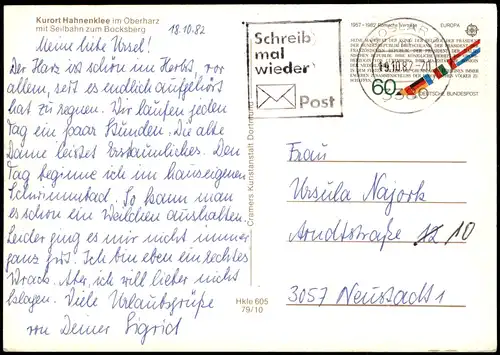 Kurort Hahnenklee im Oberharz
mit Seilbahn zum Bocksberg
18.10.82
Meine liebe Ursel!
Der Harz ist schön im Herbst, vor
allem, seit es endlich aufgehört
hat zu regnen. Wir laufen jeden
Tag ein paar Stunden. Die alte
Dame leistet Erstaunliches. Den
Tag beginne ich im hauseigenen
Schwimmbad. So kann man
es schon ein Weilchen aushalten.
Leider ging es mir nicht immer
ganz gut. Ich bin eben ein rechtes
Wrack. Aber, ich will lieber nicht
klagen. Viele Urlaubsgrüße
von Deiner Sigrid
Cramers Kunstanstalt Dortmund
Hkle 605
79/10
Schreib
mal
wieder
Post
GOSLAR
19.10.82
3380
1957-1982 Römische Verträge
EUROPA
60
DEUTSCHE BUNDESPOST
Frau
Ursula Najork
Arndtstraße 10
3057 Neustadt 1